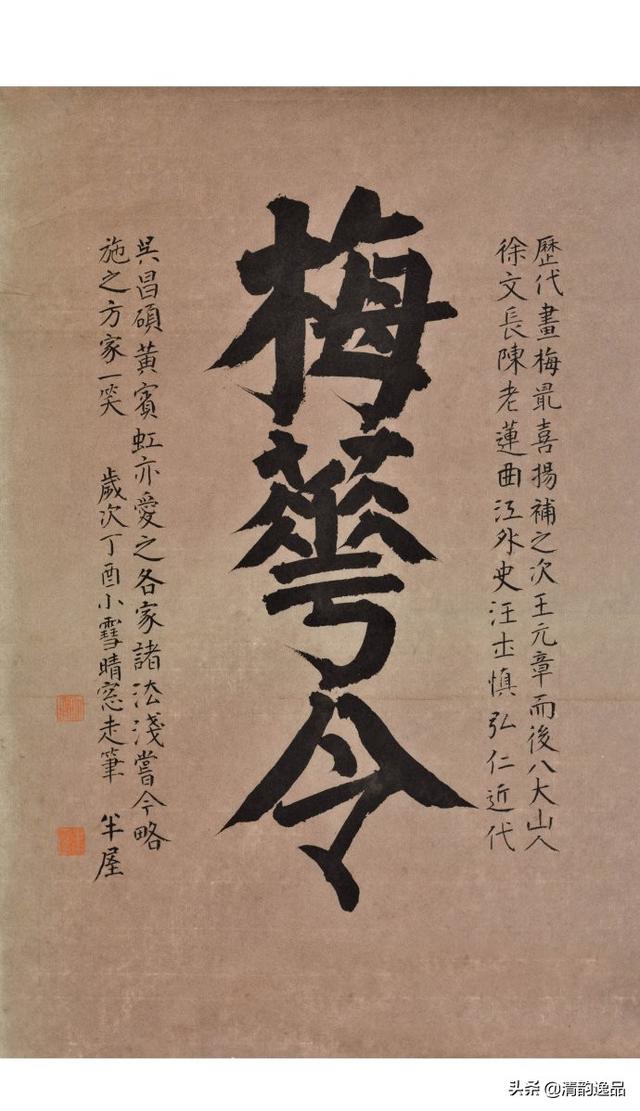 歷代畫梅最喜揚補之次王元章而後八大山人
徐文長陳老蓮曲江外史汪士慎弘仁近代
梅華令
吳昌碩黃賓虹亦愛之各家諸法淺嘗今略
施之方家一笑 歲次丁酉小雪晴窓走筆 半屋
头条 @清韵逸品